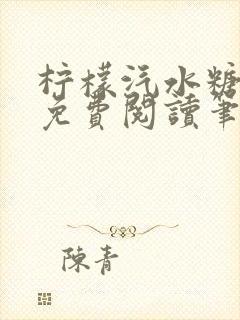 柠檬汽水糖
免費閱讀筆
陳青